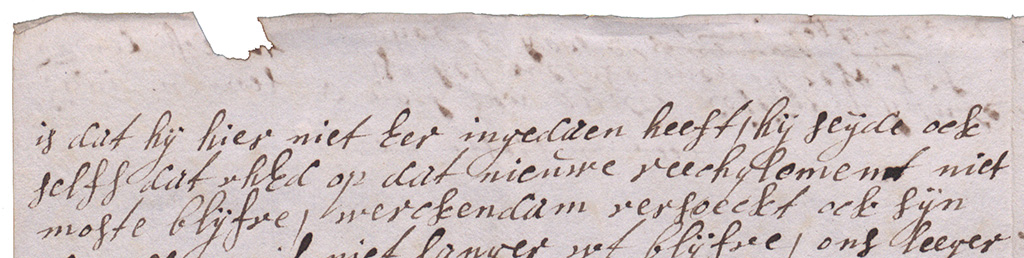 is dat hij hier niet ter ingedaen heeft, hij seijde ock
selfs dat uhEd op dat nieuwe reechglement niet
moste blijfve, werckendam versoeckt ock sijn
niet langer wt blijfve, ons leeger